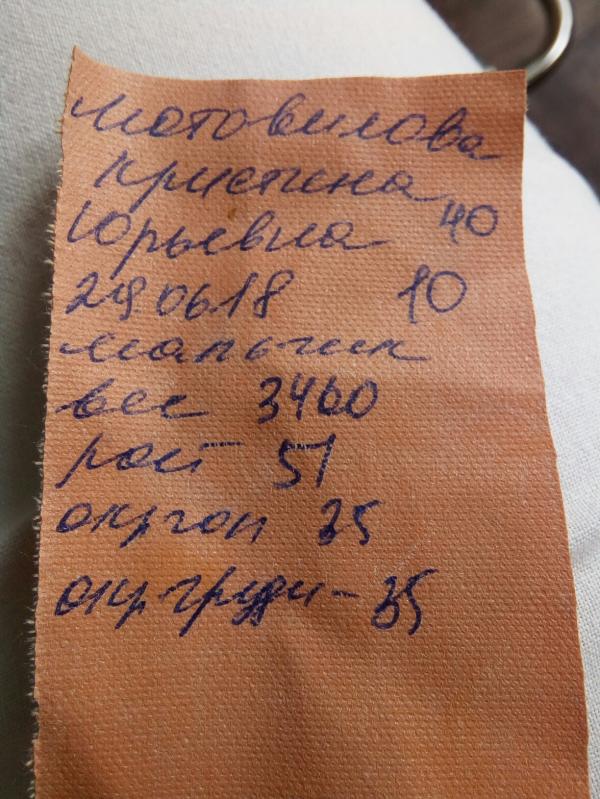 Мотовилова
Кристина
Юрьевна 40
290618 10
мальчик
вес 3460
рост 51
окр гол 35
окр груди - 35